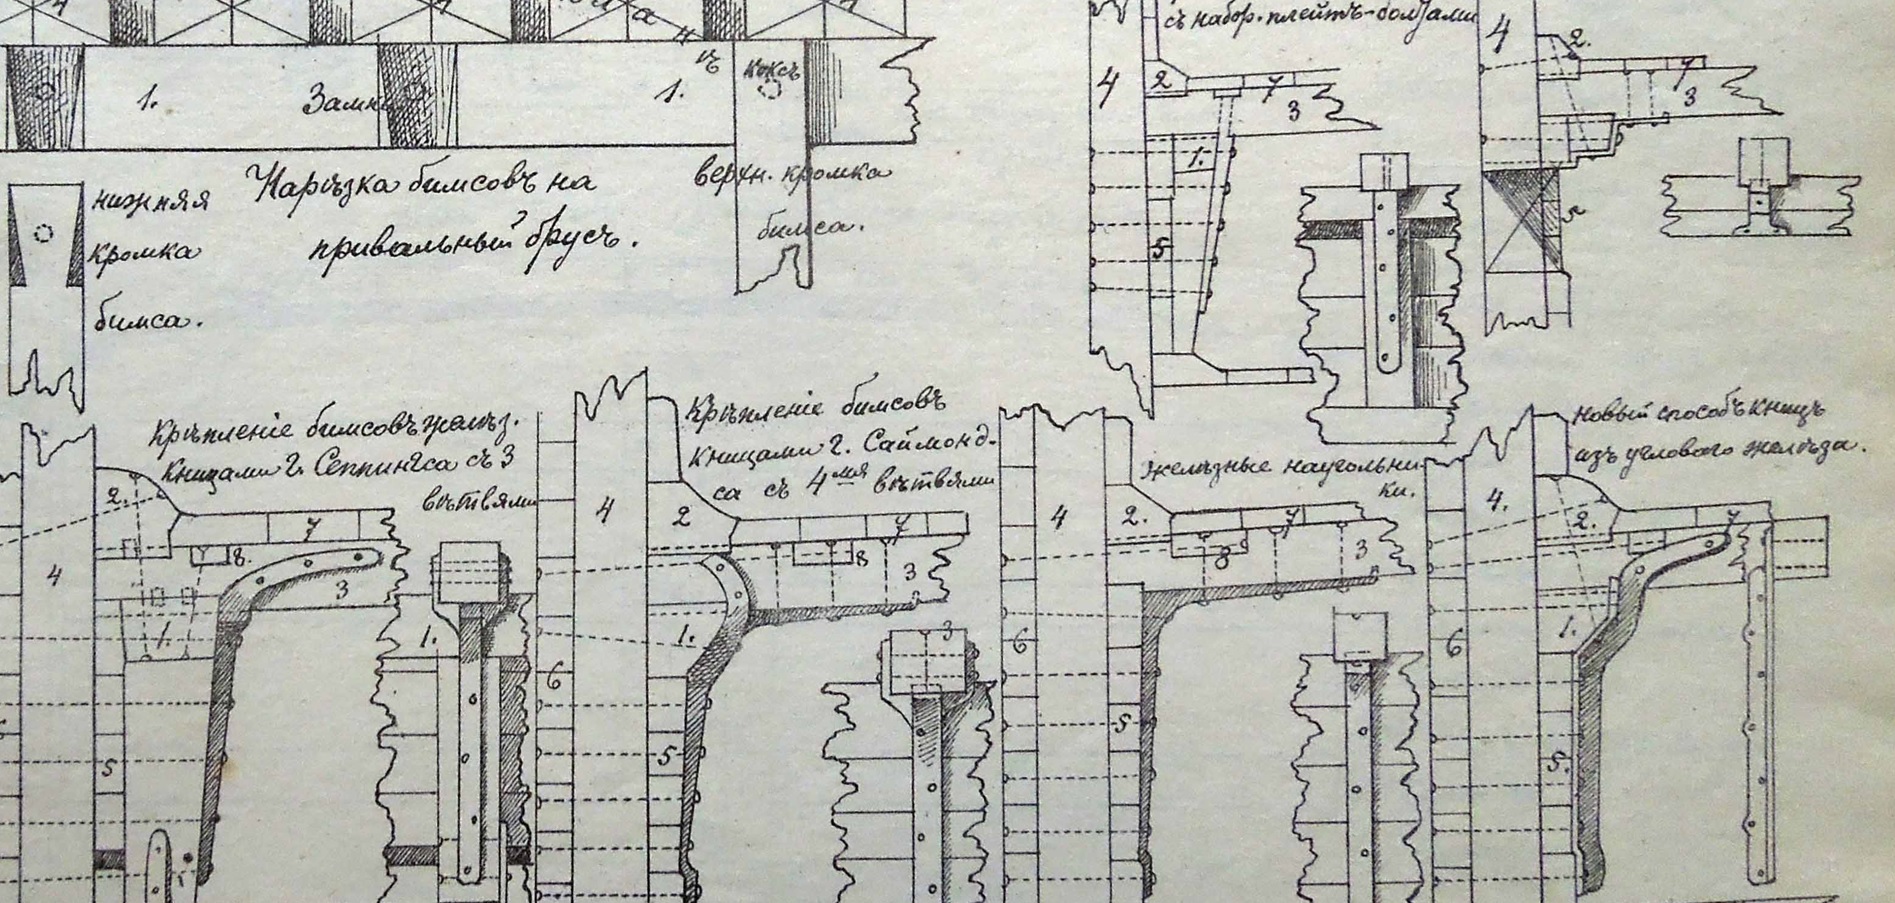 съ набор. плейтъ-болтами
Замки
коксъ
нижняя
кромка
бимса.
Нарѣзка бимсовъ на
привальный брусъ.
верхн. кромка
бимса.
Крѣпленіе бимсовъ желѣз.
кницами г. Сеппингса съ 3
вѣтвями
Крѣпленіе бимсовъ
кницами г. Саймонд-
са съ 4мя вѣтвями
желѣзные наугольни-
ки.
Новый способъ кницъ
изъ углового желѣза.
1.
1.
4
2
7
3
1.
5
4
2.
7
3
5
2.
7
8.
4
3
1.
5
1.
6
4
2
7
8
3
1.
5
3
6
4
2.
7
8
3
5
6
4.
2.
7
1.
5.